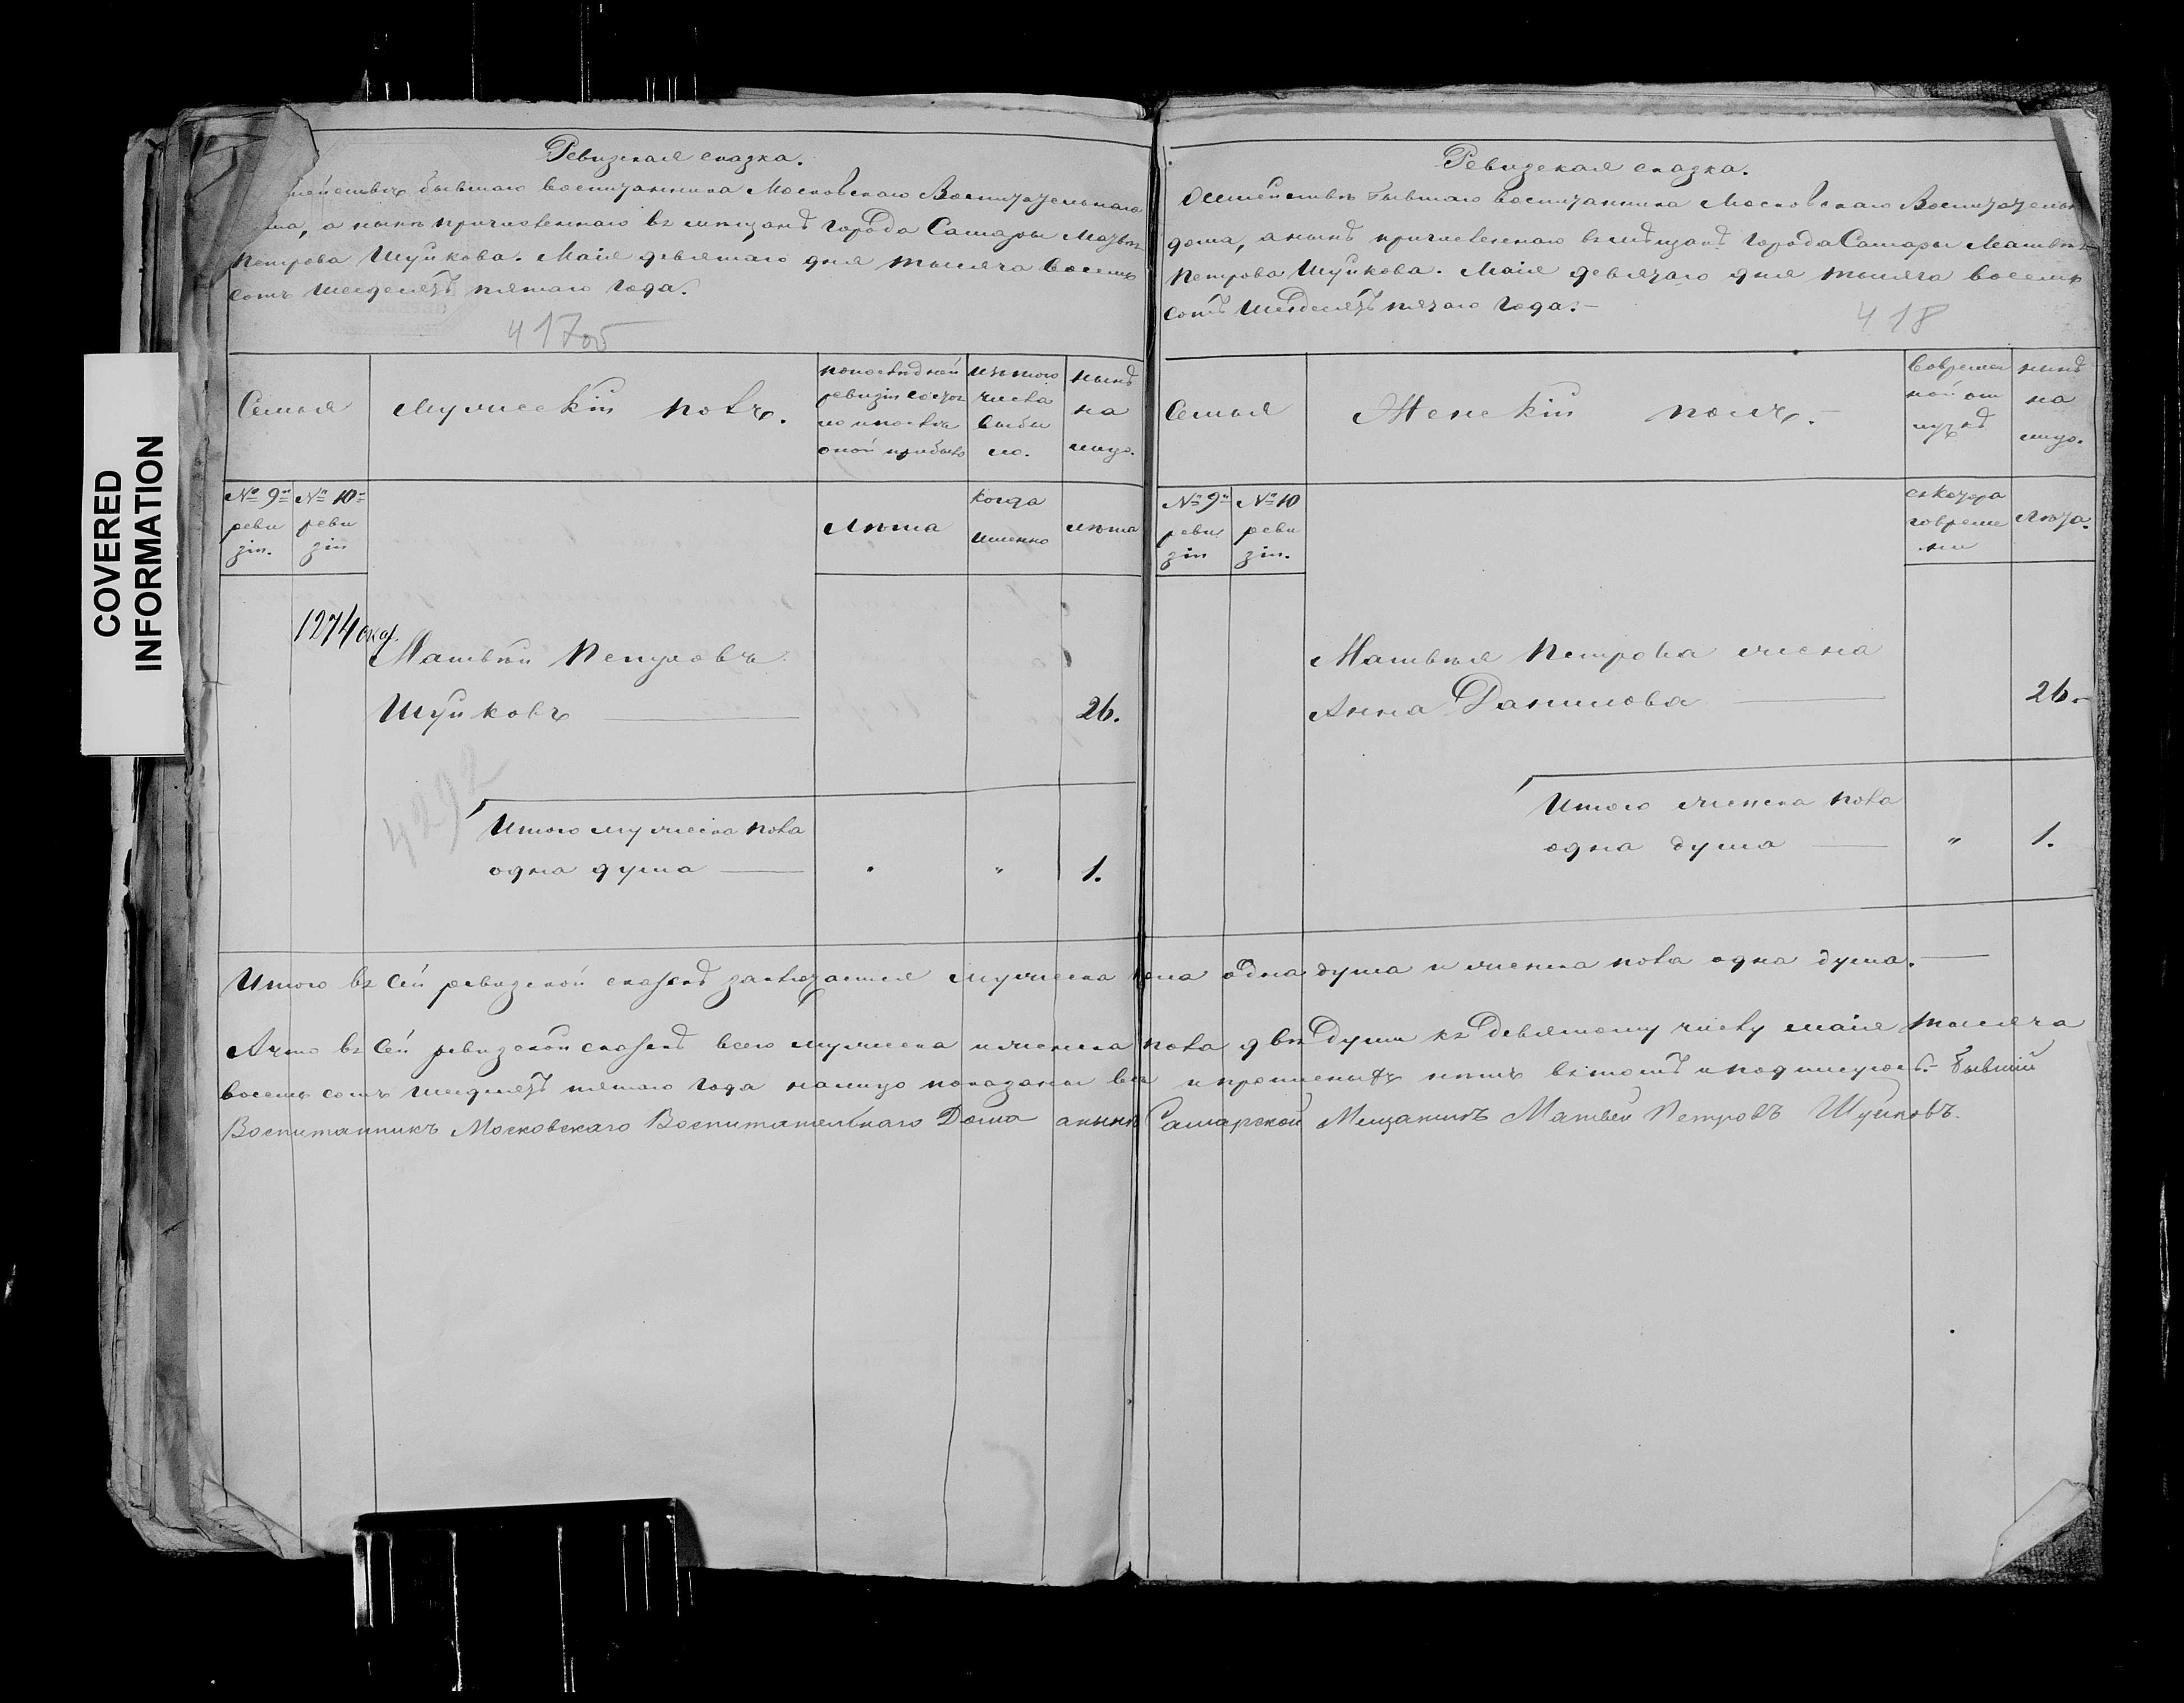 COVERED
INFORMATION
Ревизская сказка.
бывшаго воспитанника Московскаго Воспитательнаго
а нынѣ причисленнаго въ мѣщанѣ города Самары Матвѣя
Петрова Шуйкова. Маія девятаго дня тысяча восемь
сотъ шесдесятъ пятаго года.
417об
Семья
мужескій полъ.
по последней
ревизіи состоя
ло и после
оной прибыло
изътого
числа
выбы
ло.
нынѣ
на
лицо.
№ 9й
реви
зіи.
№ 10й
реви
зіи
Лѣта
когда
именно
лѣта
1274
Матвѣй Петровъ
Шуйковъ
26.
4292
Итого мужеска пола
одна душа
"
"
1.
Ревизская сказка.
Осемействѣ бывшаго воспитанника Московскаго Воспитательн
дома, а нынѣ причисленнаго въ мѣщанѣ города Самары Матвѣя
Петрова Шуйкова. Маія девятаго дня тысяча восемь
сотъ шесдесятъ пятаго года.
418
Семья
Женскій полъ.
Вовремен
ной от
лучкѣ
нынѣ
на
лицо.
№ 9й
реви
зіи
№ 10
реви
зіи.
съкотора
говреме
ни
Лѣта.
Матвѣя Петрова жена
Анна Данилова
26.
Итого женска пола
одна душа
"
1.
Итого въ сей ревизской сказкѣ заключается мужеска пола одна душа и женска пола одна душа.
Ачто въ сей ревизской сказкѣ всего мужеска и женска пола двѣ души къ девятому числу маія тысяча
восемь сотъ шесдесятъ пятаго года налицо показаны все и прописныхъ нѣтъ въ томъ и подписуюсь. Бывшій
Воспитанникъ Московскаго Воспитательнаго Дома анынѣ Самарской Мещанинъ Матвей Петровъ Шуйковъ.